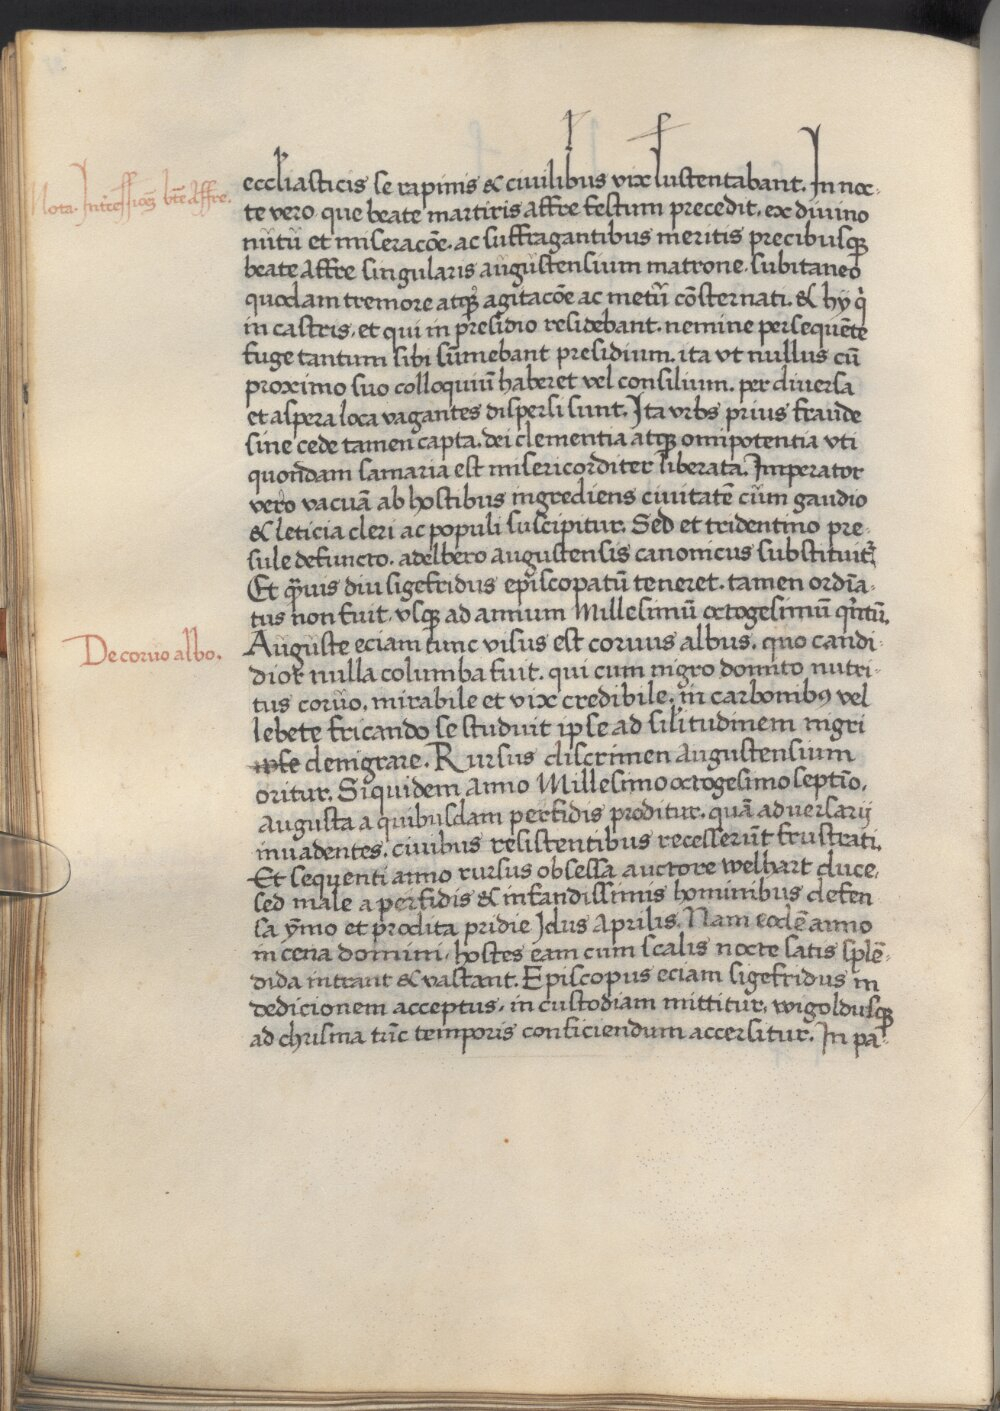 eccl̃iasticis se rapinis & ciuilibus vix sustentabant. In noc-
Nota. Intercessioẽ btẽ Affre.
te vero. que beate martiris affre festum precedit. ex diuino
nutũ et miseracõe. ac suffragantibus meritis precibusqꝫ
beate Affre singularis augustensium matrone. subitaneo
quodam tremore atqꝫ agitacõe ac metũ cõsternati. & hy q̇
in castris. et qui in presidio residebant. nemine persequẽte
fuge tantum sibi sũmebant presidium. ita vt nullus cũ
proximo suo colloquiũ haberet vel consilium. per diuersa
et aspera loca vagantes dispersi sunt. Ita vrbs prius fraude
sine cede tamen capta. dei clementia atqꝫ omipotentia vti
quondam samaria est misericorditer liberata. Imperator
vero vacuã ab hostibus ingrediens ciuitatẽ cum gaudio
& leticia cleri ac populi suscipitur. Sed et tridentino pre-
sule defuncto. adelbero augustensis canonicus substituit᷑.
Et qͣuis diu sigefridus ep̃iscopatũ teneret. tamen ordĩa-
tus non fuit. vsqꝫ ad annum Millesimũ octogesimũ qͥntũ.
Auguste eciam tunc visus est coruus albus. quo candi-
De coruo albo.
dior nulla columba fuit. qui cum nigro domito nutri-
tus coruo. mirabile et vix credibile. in carbonibꝰ vel
lebete fricando se studuit ipse ad sil̃itudinem nigri
ipse denigrare. Rursus discrimen Augustensium
oritur. Siquidem anno Millesimo octogesimo septĩo.
augusta a quibusdam perfidis proditur. quã aduersarij
inuadentes. ciuibus resistentibus recesserũt frustrati.
Et sequenti anno rursus obsessa auctore welhart duce.
sed male a perfidis & infandissimis hominibus defen
sa ỹmo et prodita pridie Idus Aprilis. Nam eodẽ anno
in cena domini. hostes eam cum scalis nocte satis splẽ-
dida intrant & vastant. Episcopus eciam sigefridus in
dedicionem acceptus. in custodiam mittitur. wigoldusqꝫ
ad chrisma tũc temporis conficiendum accersitur. In pa-